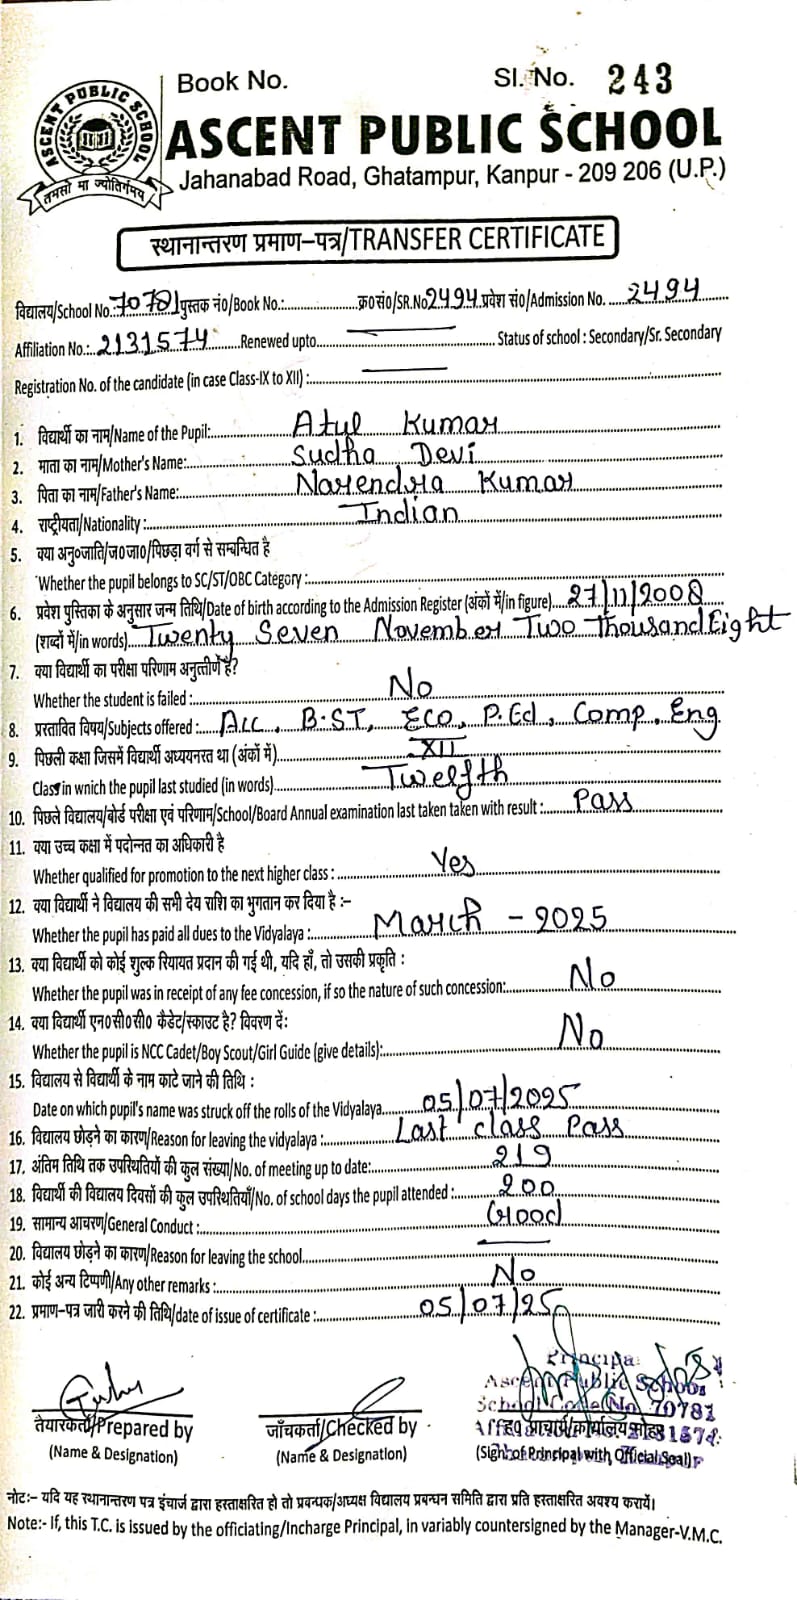 Book No. Sl. No. 243
ASCENT PUBLIC SCHOOL
तमसो मा ज्योतिर्गमय
ASCENT PUBLIC SCHOOL
Jahanabad Road, Ghatampur, Kanpur - 209 206 (U.P.)
स्थानान्तरण प्रमाण–पत्र/TRANSFER CERTIFICATE
विद्यालय/School No.: 70781 पुस्तक नं०/Book No.: क्र०सं०/SR.No 2494 प्रवेश सं०/Admission No. 2494
Affiliation No.: 2131574 Renewed upto. — Status of school : Secondary/Sr. Secondary
Registration No. of the candidate (in case Class-IX to XII) : —
1. विद्यार्थी का नाम/Name of the Pupil: Atul Kumar
2. माता का नाम/Mother's Name: Sudha Devi
3. पिता का नाम/Father's Name: Narendra Kumar
4. राष्ट्रीयता/Nationality : Indian
5. क्या अनु०जाति/ज०जा०/पिछड़ा वर्ग से सम्बन्धित है
Whether the pupil belongs to SC/ST/OBC Category :
6. प्रवेश पुस्तिका के अनुसार जन्म तिथि/Date of birth according to the Admission Register (अंकों में/in figure) 27/11/2008
(शब्दों में/in words) Twenty Seven November Two Thousand Eight
7. क्या विद्यार्थी का परीक्षा परिणाम अनुत्तीर्ण है?
Whether the student is failed : No
8. प्रस्तावित विषय/Subjects offered : Acc, B.ST, Eco, P.Ed, Comp, Eng
9. पिछली कक्षा जिसमें विद्यार्थी अध्ययनरत था (अंकों में) XII
Class in wnich the pupil last studied (in words) Twelfth
10. पिछले विद्यालय/बोर्ड परीक्षा एवं परिणाम/School/Board Annual examination last taken taken with result : Pass
11. क्या उच्च कक्षा में पदोन्नत का अधिकारी है
Whether qualified for promotion to the next higher class : Yes
12. क्या विद्यार्थी ने विद्यालय की सभी देय राशि का भुगतान कर दिया है :–
Whether the pupil has paid all dues to the Vidyalaya : March - 2025
13. क्या विद्यार्थी को कोई शुल्क रियायत प्रदान की गई थी, यदि हाँ, तो उसकी प्रकृति :
Whether the pupil was in receipt of any fee concession, if so the nature of such concession: No
14. क्या विद्यार्थी एन०सी०सी० कैडेट/स्काउट है? विवरण दें:
Whether the pupil is NCC Cadet/Boy Scout/Girl Guide (give details): No
15. विद्यालय से विद्यार्थी के नाम काटे जाने की तिथि :
Date on which pupil's name was struck off the rolls of the Vidyalaya 05/07/2025
16. विद्यालय छोड़ने का कारण/Reason for leaving the vidyalaya : Last class Pass
17. अंतिम तिथि तक उपस्थितियों की कुल संख्या/No. of meeting up to date: 219
18. विद्यार्थी की विद्यालय दिवसों की कुल उपस्थितियाँ/No. of school days the pupil attended : 200
19. सामान्य आचरण/General Conduct : Good
20. विद्यालय छोड़ने का कारण/Reason for leaving the school —
21. कोई अन्य टिप्पणी/Any other remarks : No
22. प्रमाण–पत्र जारी करने की तिथि/date of issue of certificate : 05/07/25
Principal
Ascent Public School
School Code No. 70781
तैयारकर्ता/Prepared by जाँचकर्ता/Checked by
(Name & Designation) (Name & Designation) (Sign. of Principal with Official Seal)
नोट:– यदि यह स्थानान्तरण पत्र इंचार्ज द्वारा हस्ताक्षरित हो तो प्रबन्धक/अध्यक्ष विद्यालय प्रबन्धन समिति द्वारा प्रति हस्ताक्षरित अवश्य करायें।
Note:- If, this T.C. is issued by the officiating/Incharge Principal, in variably countersigned by the Manager-V.M.C.